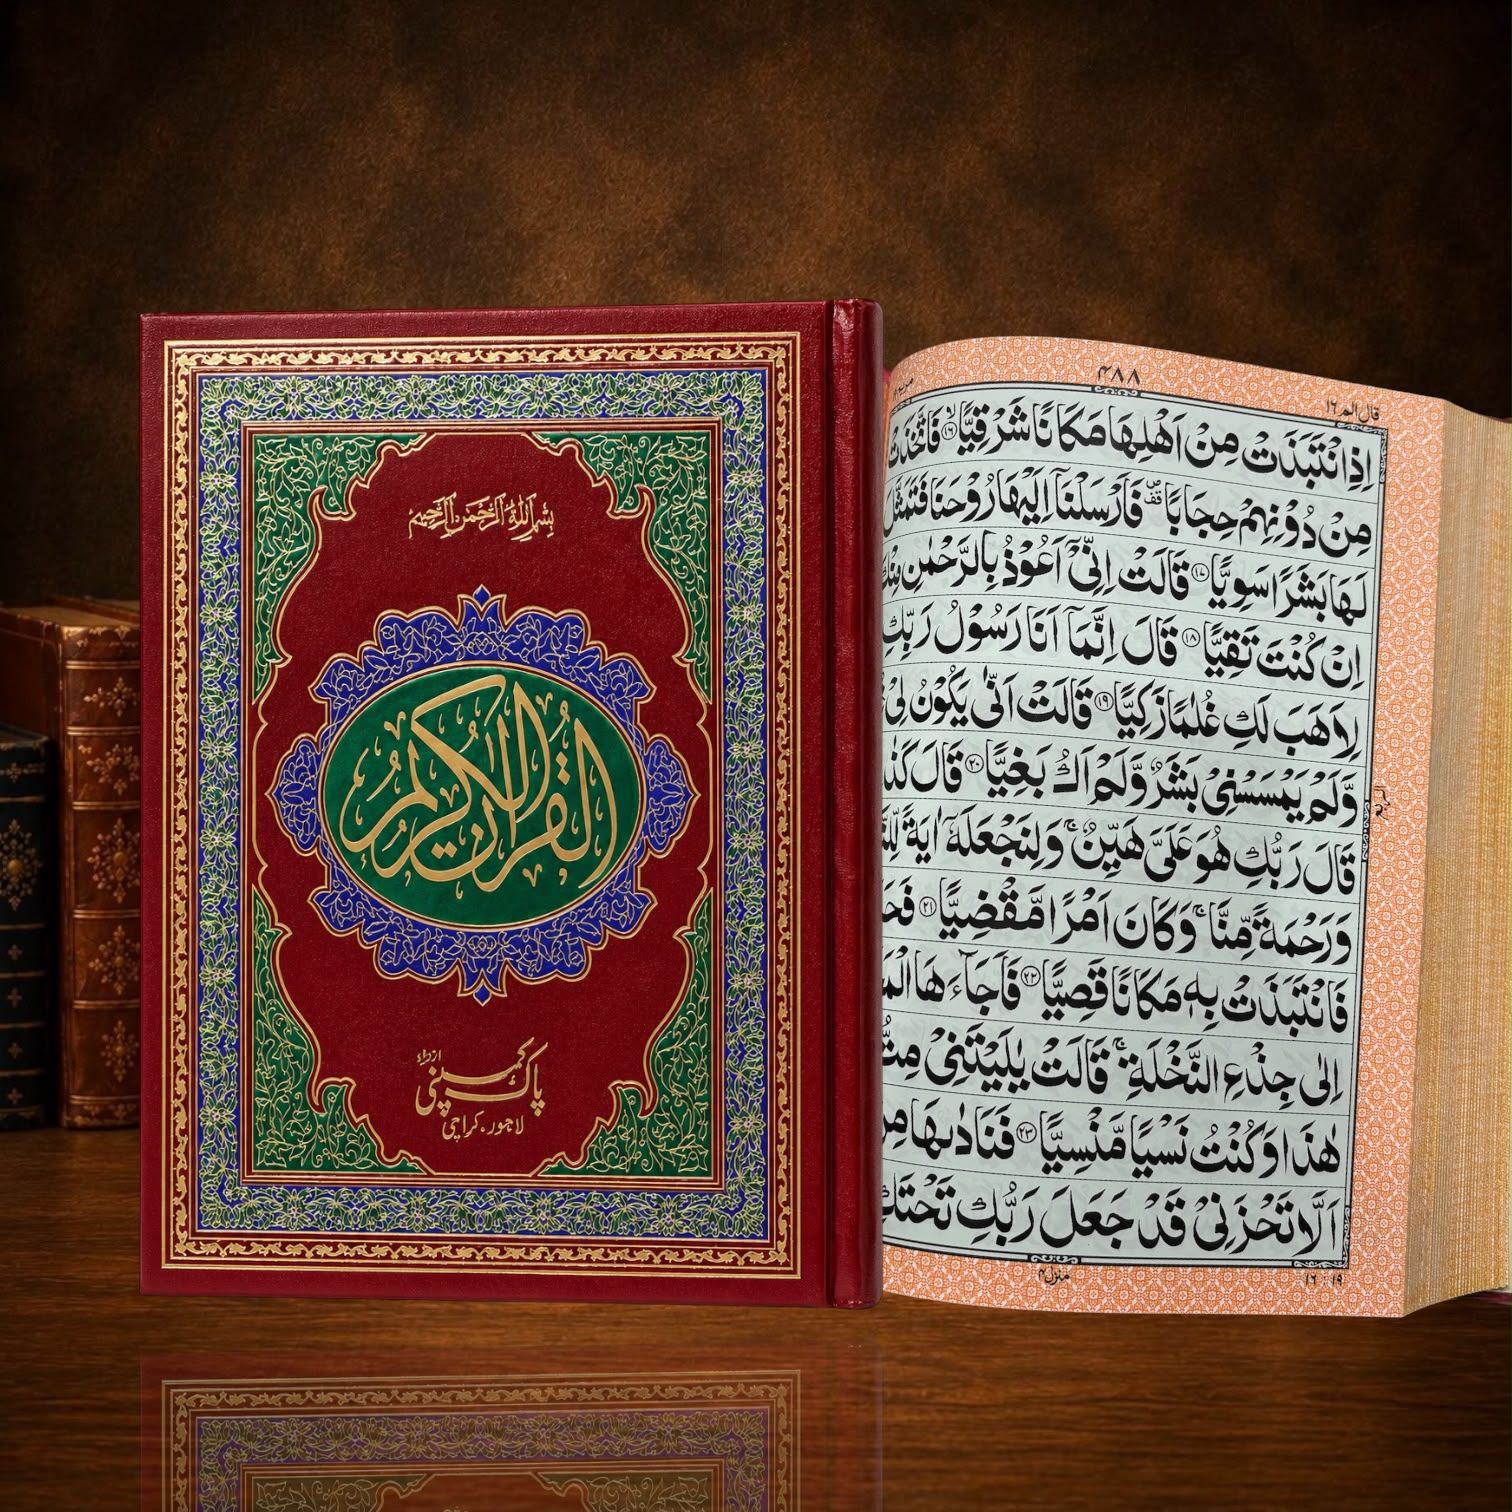 بِسْمِ اللهِ الرَّحْمٰنِ الرَّحِيْمِ
القرآن الكريم
ازرہ
پاک کمپنی
لاہور، کراچی
۴۸۸
قال الم ۱۶
اِذِ انْتَبَذَتْ مِنْ اَهْلِهَا مَكَانًا شَرْقِيًّا ۱۶ فَاتَّخَذَتْ
مِنْ دُوْنِهِمْ حِجَابًا قف فَاَرْسَلْنَاۤ اِلَيْهَا رُوْحَنَا فَتَمَثَّلَ
لَهَا بَشَرًا سَوِيًّا ۱۷ قَالَتْ اِنِّيْۤ اَعُوْذُ بِالرَّحْمٰنِ مِنْكَ
اِنْ كُنْتَ تَقِيًّا ۱۸ قَالَ اِنَّمَاۤ اَنَا رَسُوْلُ رَبِّكِ
لِاَهَبَ لَكِ غُلٰمًا زَكِيًّا ۱۹ قَالَتْ اَنّٰى يَكُوْنُ لِيْ
وَّلَمْ يَمْسَسْنِيْ بَشَرٌ وَّلَمْ اَكُ بَغِيًّا ۲۰ قَالَ
قَالَ رَبُّكِ هُوَ عَلَيَّ هَيِّنٌ ۚ وَلِنَجْعَلَهٗۤ اٰيَةً
وَرَحْمَةً مِّنَّا ۚ وَكَانَ اَمْرًا مَّقْضِيًّا ۲۱
فَانْتَبَذَتْ بِهٖ مَكَانًا قَصِيًّا ۲۲ فَاَجَآءَهَا
اِلٰى جِذْعِ النَّخْلَةِ ۚ قَالَتْ يٰلَيْتَنِيْ
هٰذَا وَكُنْتُ نَسْيًا مَّنْسِيًّا ۲۳ فَنَادٰىهَا مِنْ
اَلَّا تَحْزَنِيْ قَدْ جَعَلَ رَبُّكِ تَحْتَكِ
منزل ۴
۱۹ : ۱۶